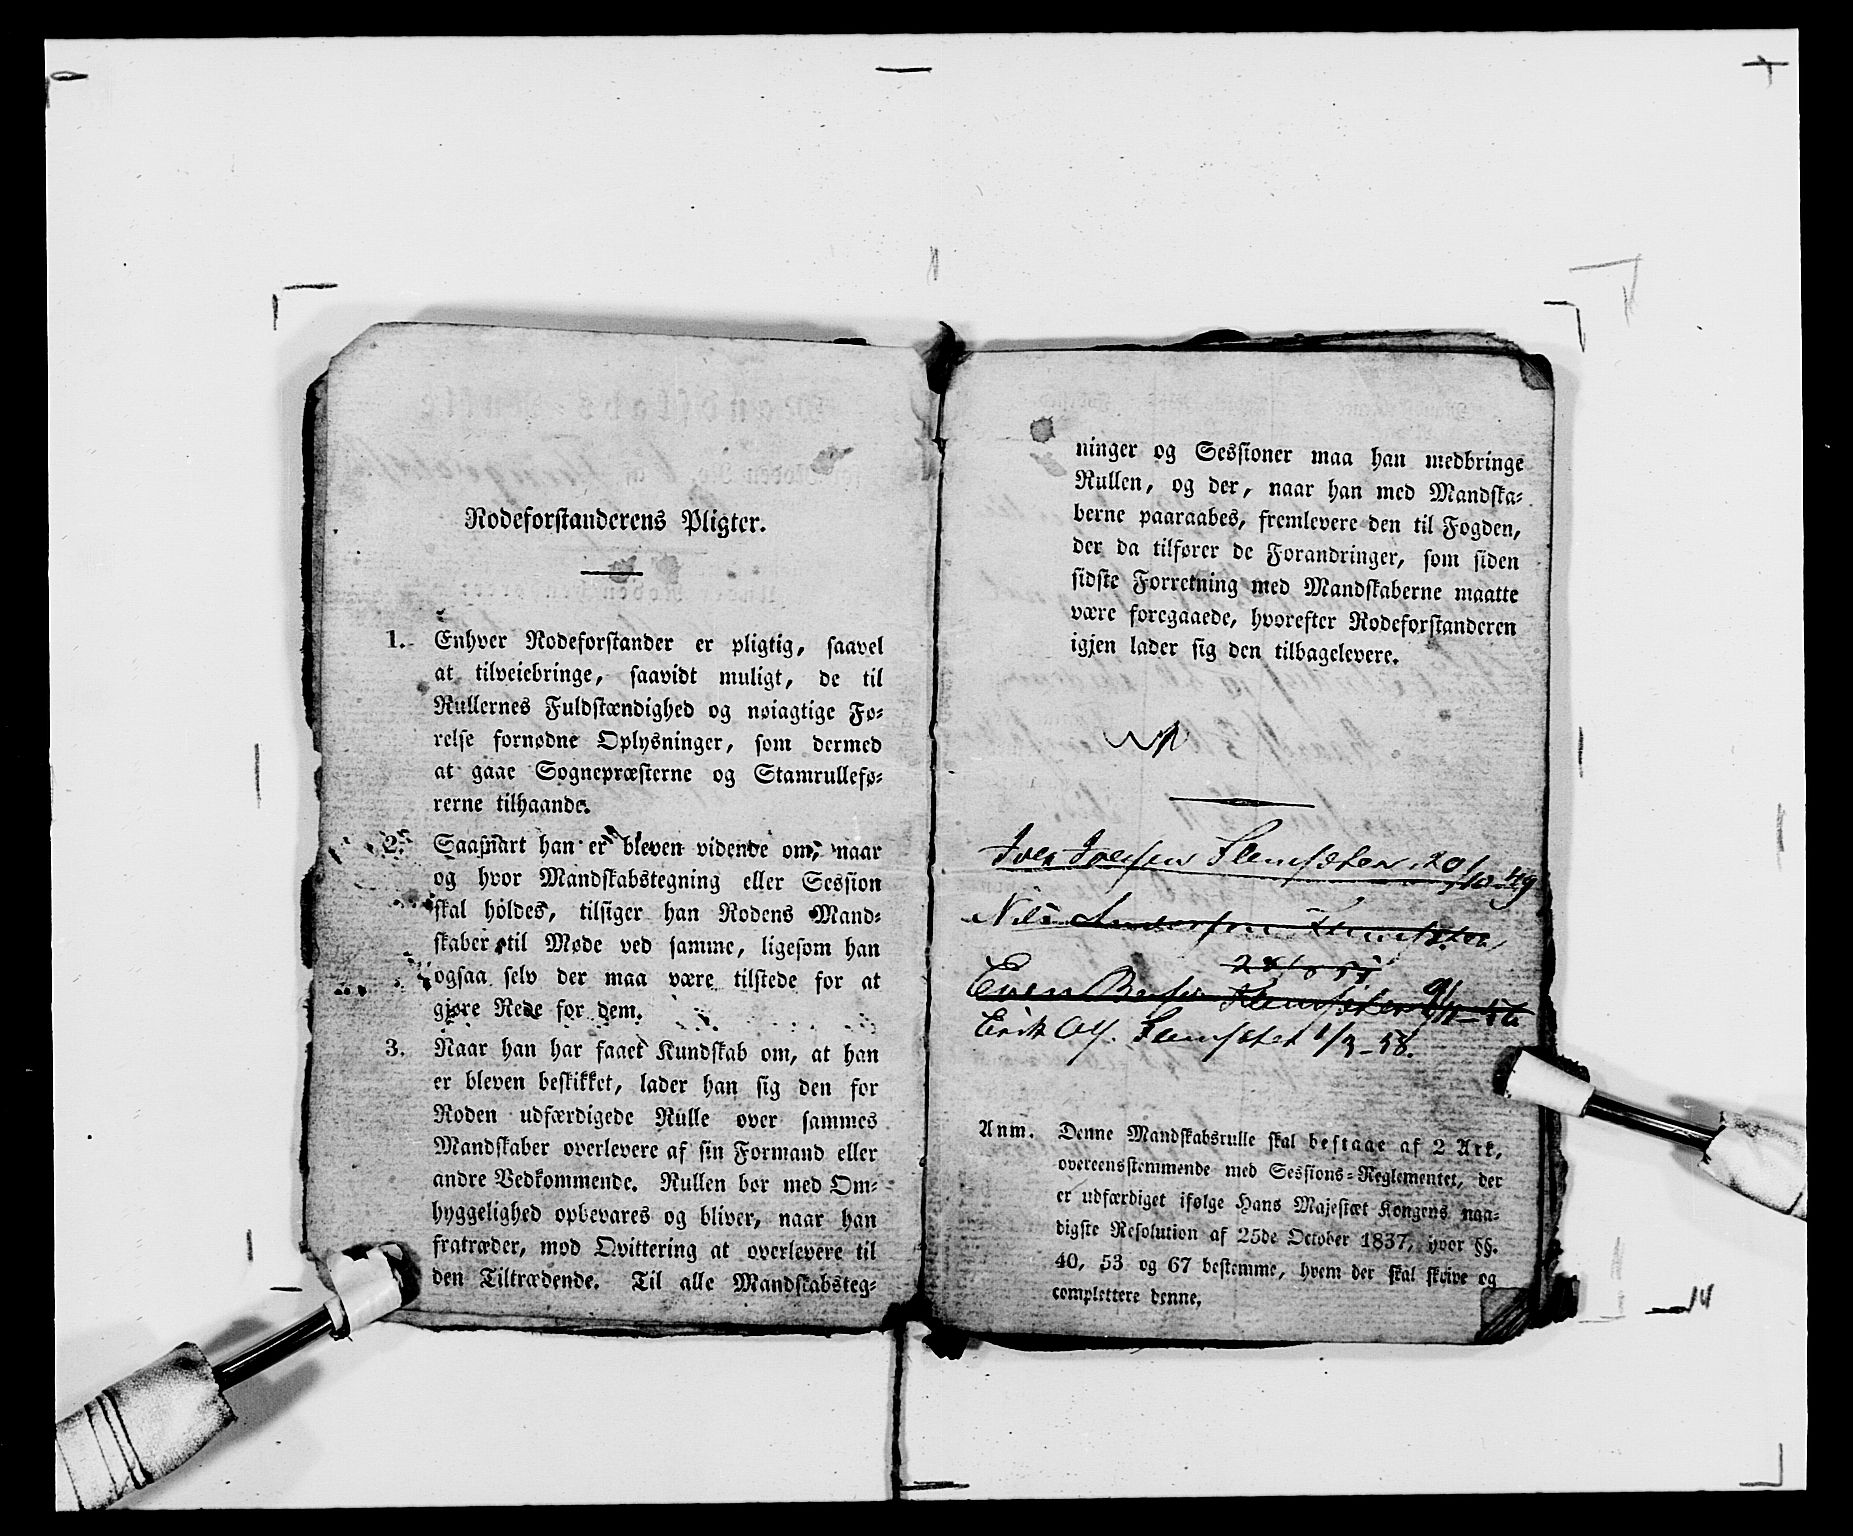 Rodeforstanderens Pligter.
1. Enhver Rodeforstander er pligtig, saavel
at tilveiebringe, saavidt muligt, de til
Rullernes Fuldstændighed og nøiagtige Fø-
relse fornødne Oplysninger, som dermed
at gaae Sognepræsterne og Stamrulleføˍ
rerne tilhaande.
2. Saasnart han er bleven vidende om, naar
og hvor Mandskabstegning eller Session
skal holdes, tilsiger han Rodens Mand-
skaber til Møde ved samme, ligesom han
ogsaa selv der maa være tilstede for at
gjøre Rede for dem.
3. Naar han har faaet Kundskab om, at han
er bleven beskikket, lader han sig den for
Roden udfærdigede Rulle over sammes
Mandskaber overlevere af sin Formand eller
andre Vedkommende. Rullen bør med Om-
hyggelighed opbevares og bliver, naar han
fratræder, mod Qvittering at overlevere til
den Tiltrædende. Til alle Mandskabsteg-
ninger og Sessioner maa han medbringe
Rullen, og der, naar han med Mandska-
berne paaraabes, fremlevere den til Fogden,
der da tilfører de Forandringer, som siden
sidste Forretning med Mandskaberne maatte
være foregaaede, hvorefter Rodeforstanderen
igjen lader sig den tilbagelevere.
Iver Iversen Slemsæter 20/10-49
Nils Andersen Slemsæter
Even Slemsæter 9/1-56
Erik Ols. Slemsæter 1/3-58.
Anm. Denne Mandskabsrulle skal bestaae af 2 Ark,
overeensstemmende med Sessions-Reglementet, der
er udfærdiget ifølge Hans Majestæt Kongens naa-
digste Resolution af 25de October 1837, hvor §§.
40, 53 og 67 bestemme, hvem der skal skrive og
complettere denne.
14